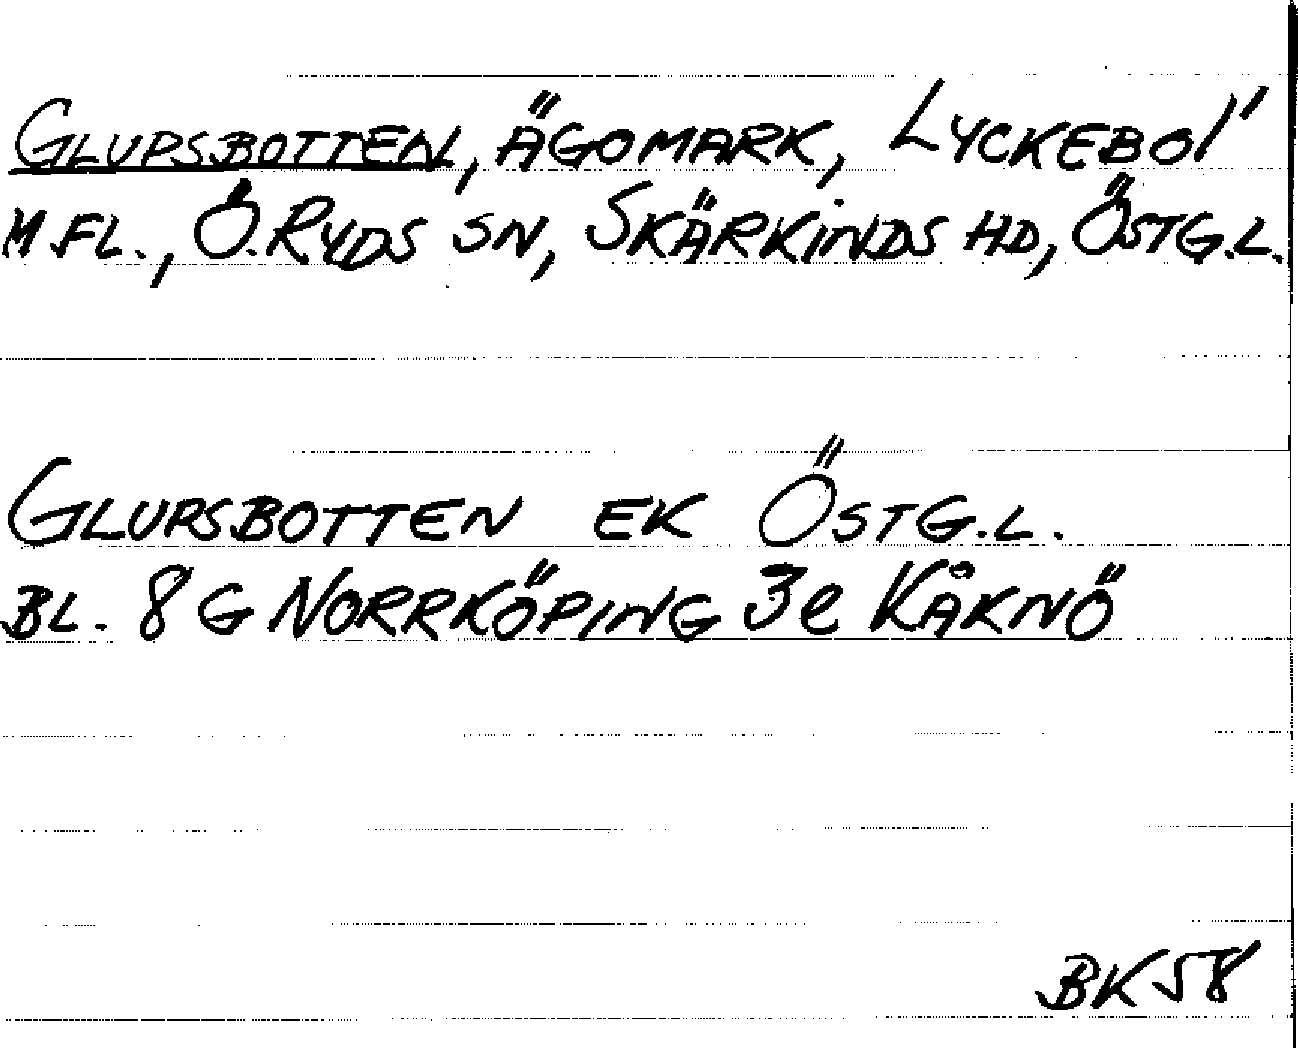 GLUPSBOTTEN, ÄGOMARK, LYCKEBO 1'
M.FL., Ö. RYDS SN, SKÄRKINDS HD, ÖSTG.L.
GLUPSBOTTEN EK ÖSTG.L.
BL. 8G NORRKÖPING 3e KÅKNÖ
BK58